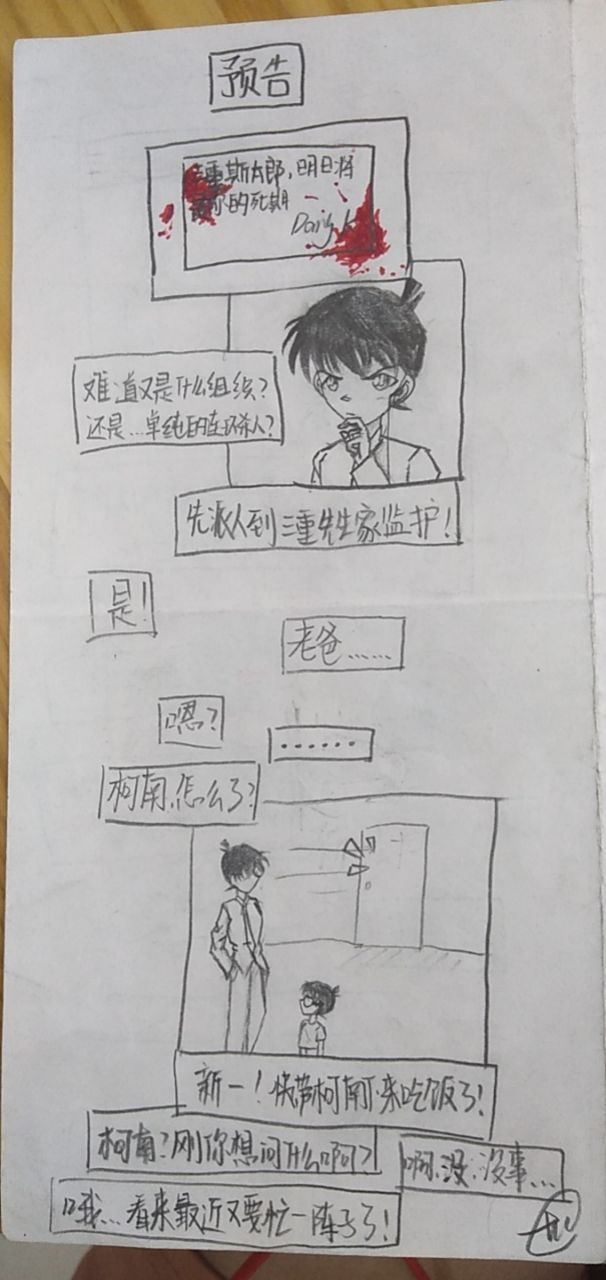 预告
三重斯太郎，明日将
是你的死期
难道又是什么组织？
还是…单纯的连环杀人？
先派人到三重先生家监护！
是！
老爸……
嗯？
……
柯南，怎么了？
新一！快带柯南下来吃饭了！
柯南？刚你想问什么啊？
啊，没，没事…
哦…看来最近又要忙一阵子了！